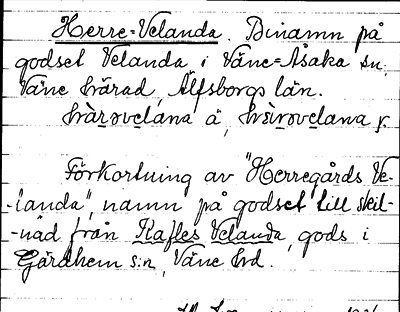 Herre-Velanda. Binamn på
godset Velanda i Väne-Åsaka sn,
Väne härad, Älfsborgs län.
Förkortning av "Herregårds Ve-
-landa", namn på godset till skil-
-nad från Kafles Velanda, gods i
Gärdhem s:n, Väne hrd.